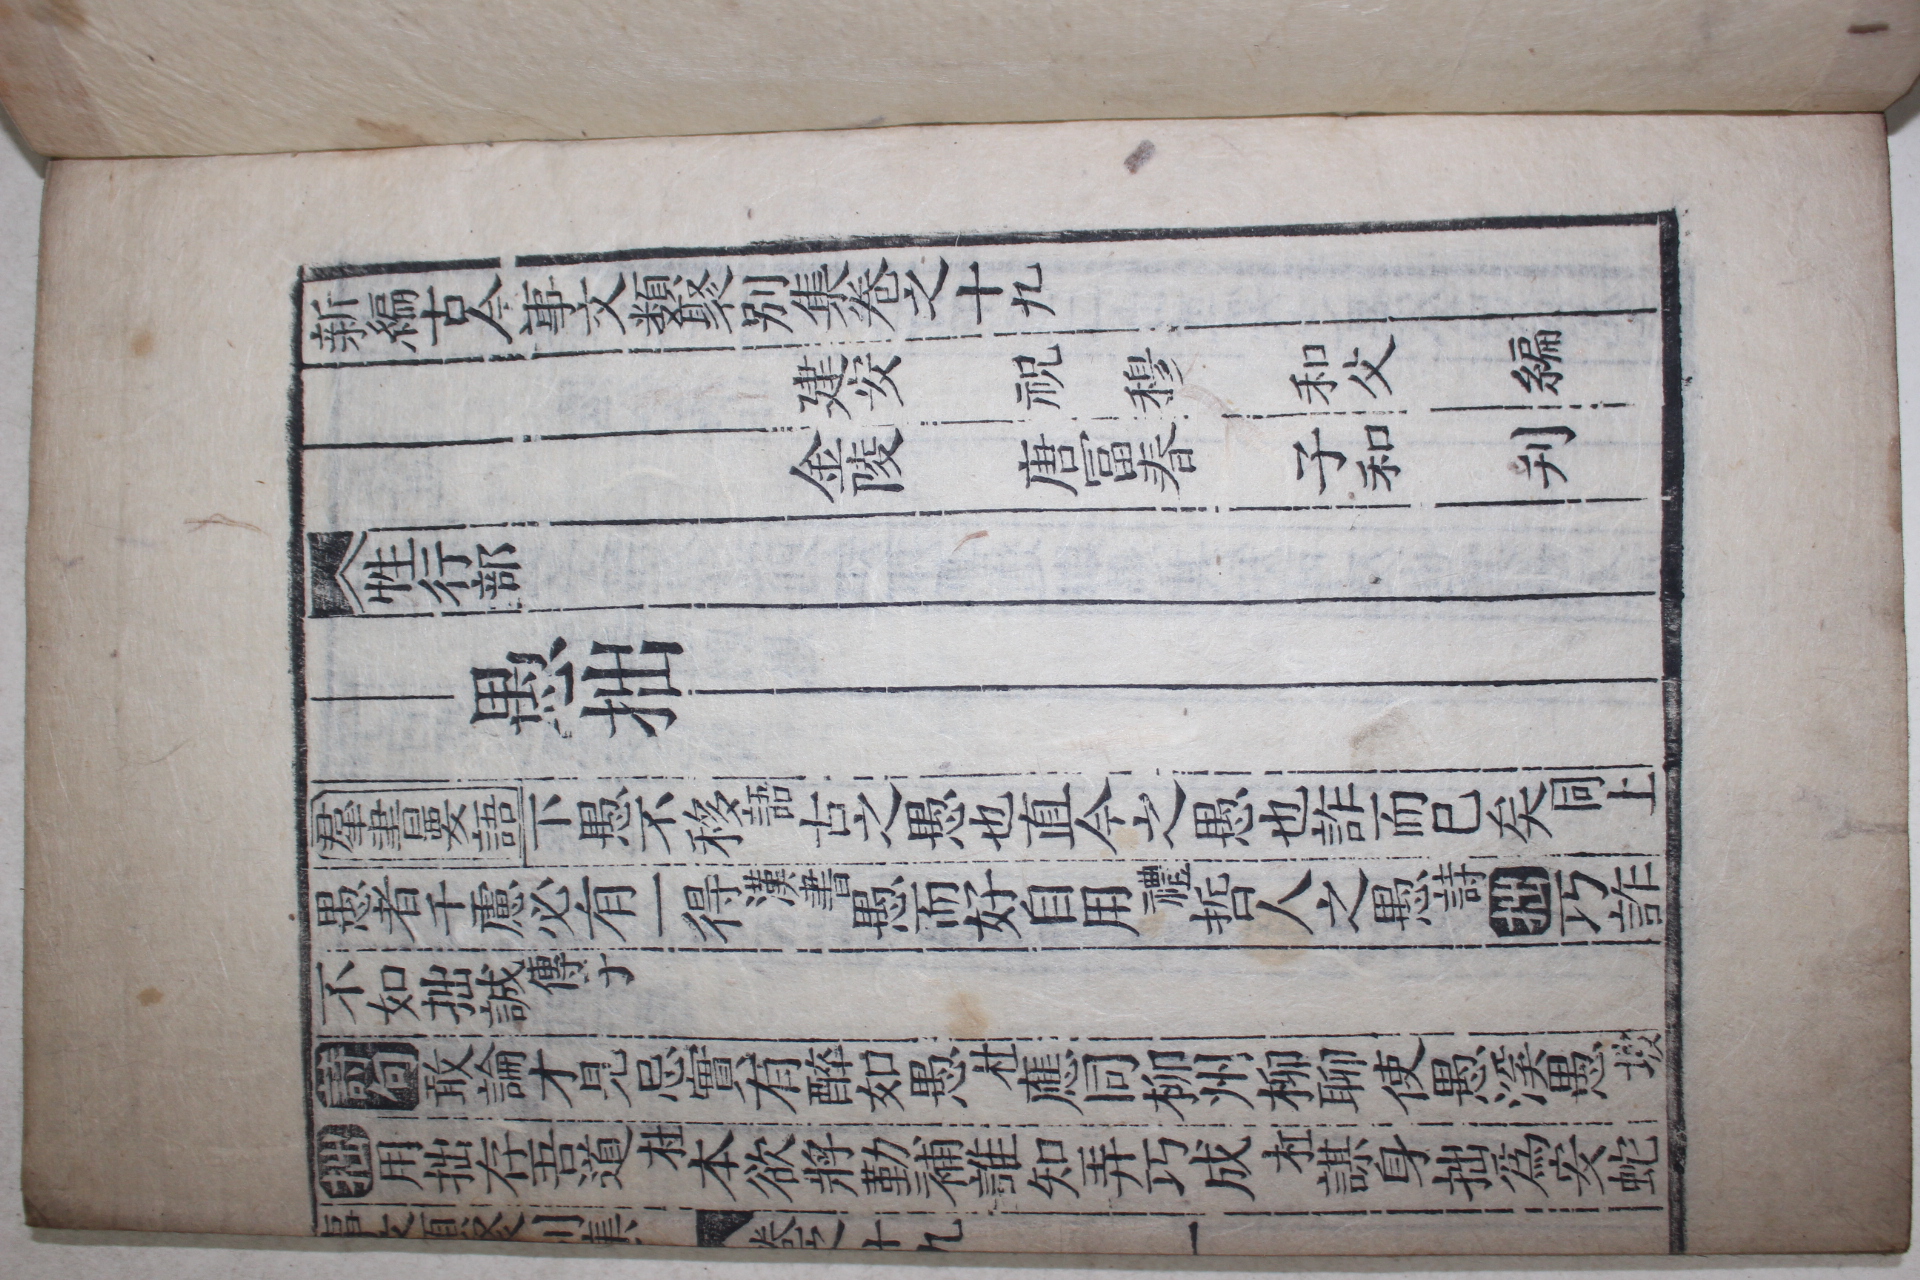 新編古今事文類聚別集卷之十九
建安　祝　穆　和父　編
金陵　唐冨春　子和　刋
性行部
愚拙
羣書要語下愚不移語古之愚也直今之愚也詐而巳矣同上
愚者千慮必有一得漢書愚而好自用禮哲人之愚詩拙巧詐
不如拙誠傳子
詩句敢論才見忌實有醉如愚杜應同柳州柳聊使愚溪愚坡
拙用拙存吾道杜本欲將勤補誰知弄巧成杜謀身拙爲安蛇
事文類聚別集　卷之十九　一